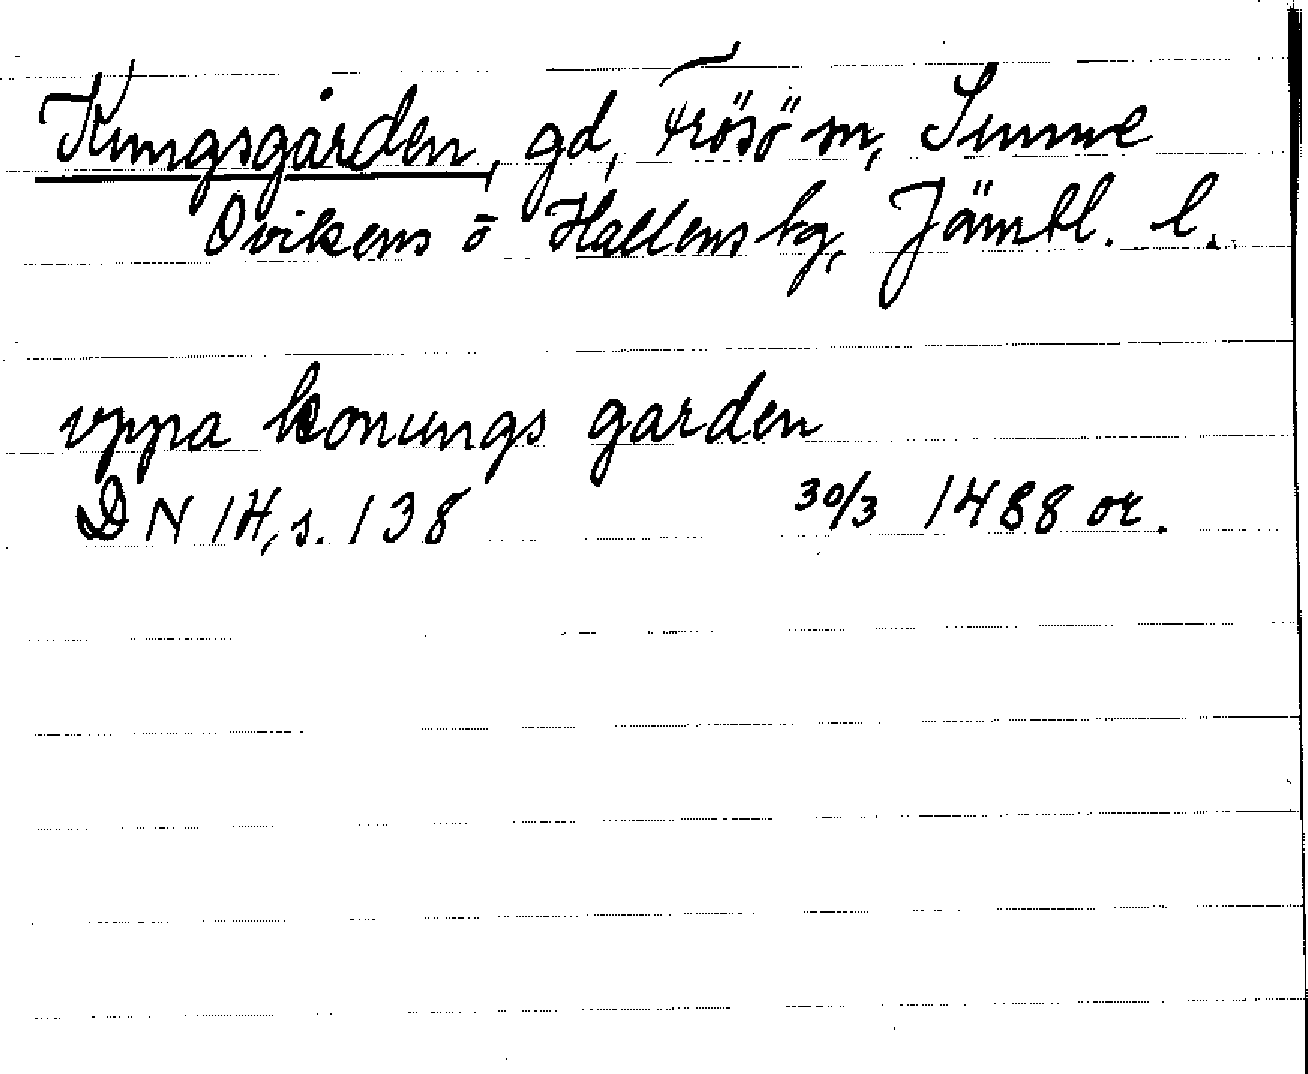 Kungsgården, gd, Frösö sn, Sunne
Ovikens o Hallens tg, Jämtl. l.
vppa konungs garden
DN 14, s. 138 30/3 1488 or.